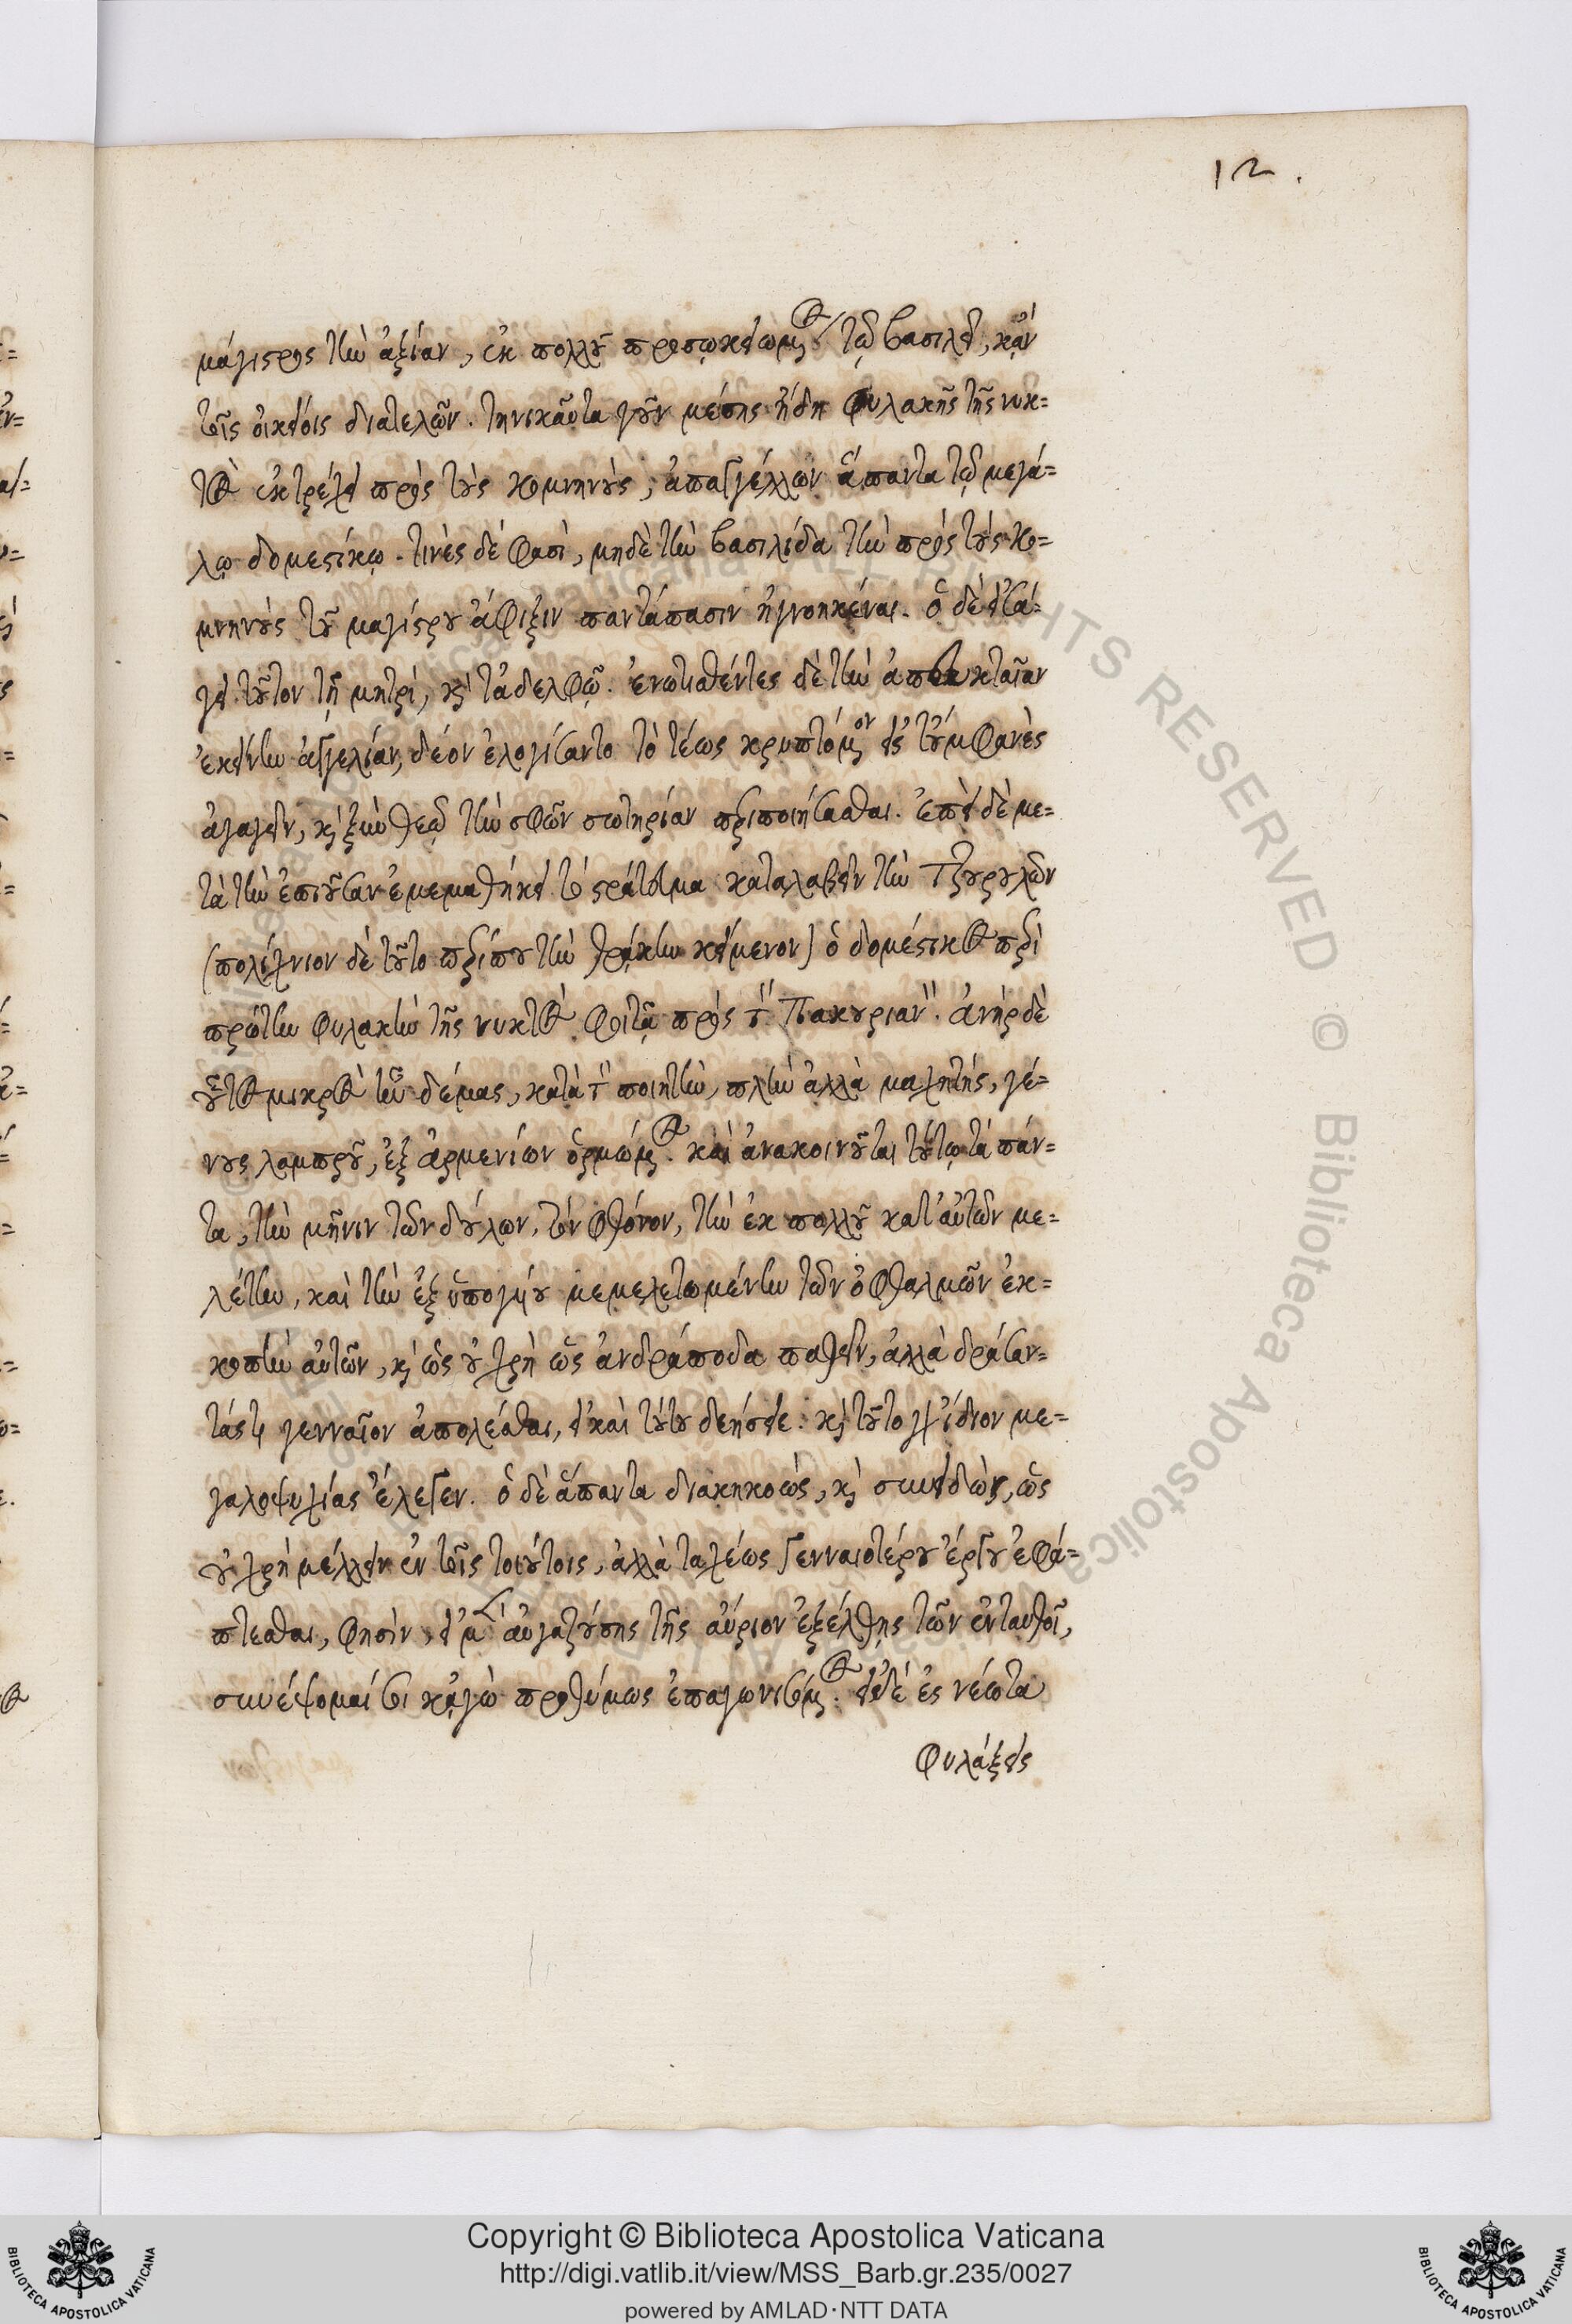 12.
μάγιστρος τὴν ἀξίαν, ἐκ πολλοῦ προσῳκειωμένος τῷ βασιλεῖ, κἀν
τοῖς οἰκείοις διατελῶν. τηνικαῦτα γοῦν μέσης ἤδη φυλακῆς τῆς νυκ=
τὸς ἐκτρέχει πρὸς τοὺς κομνηνοὺς, ἀπαγγέλλων ἅπαντα τῷ μεγά=
λῳ δομεστίκῳ. τινὲς δέ φασὶ, μηδὲ τὴν βασιλίδα τὴν πρὸς τοὺς κο=
μνηνοὺς τοῦ μαγίστρου ἄφιξιν παντάπασιν ἠγνοηκέναι. ὁ δὲ εἰσά=
γει τοῦτον τῇ μητρί, καὶ τἀδελφῷ. ἐνωτισθέντες δὲ τὴν ἀπευκταῖαν
ἐκείνην ἀγγελίαν, δέον ἐλογίσαντο τὸ τέως κρυπτόμενον εἰς τοὐμφανὲς
ἀγαγεῖν, καὶ ξὺν θεῷ τὴν σφῶν σωτηρίαν περιποιήσασθαι. ἐπεὶ δὲ με=
τὰ τὴν ἐπιοῦσαν ἐμεμαθήκει τὸ στράτευμα καταλαβεῖν τὴν Τζουρουλὸν
(πολίχνιον δὲ τοῦτο περίπου τὴν θράκην κείμενον) ὁ δομέστικος περὶ
πρώτην φυλακὴν τῆς νυκτὸς φοιτᾷ πρὸς τὸν Πακουριανόν. ἀνὴρ δὲ
οὗτος μικρὸς μὲν δέμας, κατὰ τὸν ποιητὴν, πλὴν ἀλλὰ μαχητής, γέ=
νους λαμπροῦ, ἐξ ἀρμενίων ὁρμώμενος. καὶ ἀνακοινοῦται τούτῳ τὰ πάν=
τα, τὴν μῆνιν τῶν δούλων, τὸν φθόνον, τὴν ἐκ πολλοῦ κατ' αὐτῶν με=
λέτην, καὶ τὴν ἐξ ὑπογύου μεμελετωμένην τῶν ὀφθαλμῶν ἐκ=
κοπὴν αὐτῶν, καὶ ὡς οὐ χρὴ ὡς ἀνδράποδα παθεῖν, ἀλλὰ δράσαν=
τάς τι γενναῖον ἀπολέσθαι, εἰ καὶ τούτου δεήσειε. καὶ τοῦτο γὰρ ἴδιον με=
γαλοψυχίας ἔλεγεν. ὁ δὲ ἅπαντα διακηκοὼς, καὶ συνειδὼς, ὡς
οὐ χρὴ μέλλειν ἐν τοῖς τοιούτοις, ἀλλὰ ταχέως γενναιοτέρου ἔργου ἐφά=
πτεσθαι, φησὶν, εἰ μὲν αὐγαζούσης τῆς αὔριον ἐξέλθῃς τῶν ἐνταυθοῖ,
συνέψομαί σοι κἀγὼ προθύμως ἐπαγωνισόμενος. εἰ δέ ἐς νέωτα
φυλάξεις
Copyright © Biblioteca Apostolica Vaticana
http://digi.vatlib.it/view/MSS_Barb.gr.235/0027
powered by AMLAD·NTT DATA